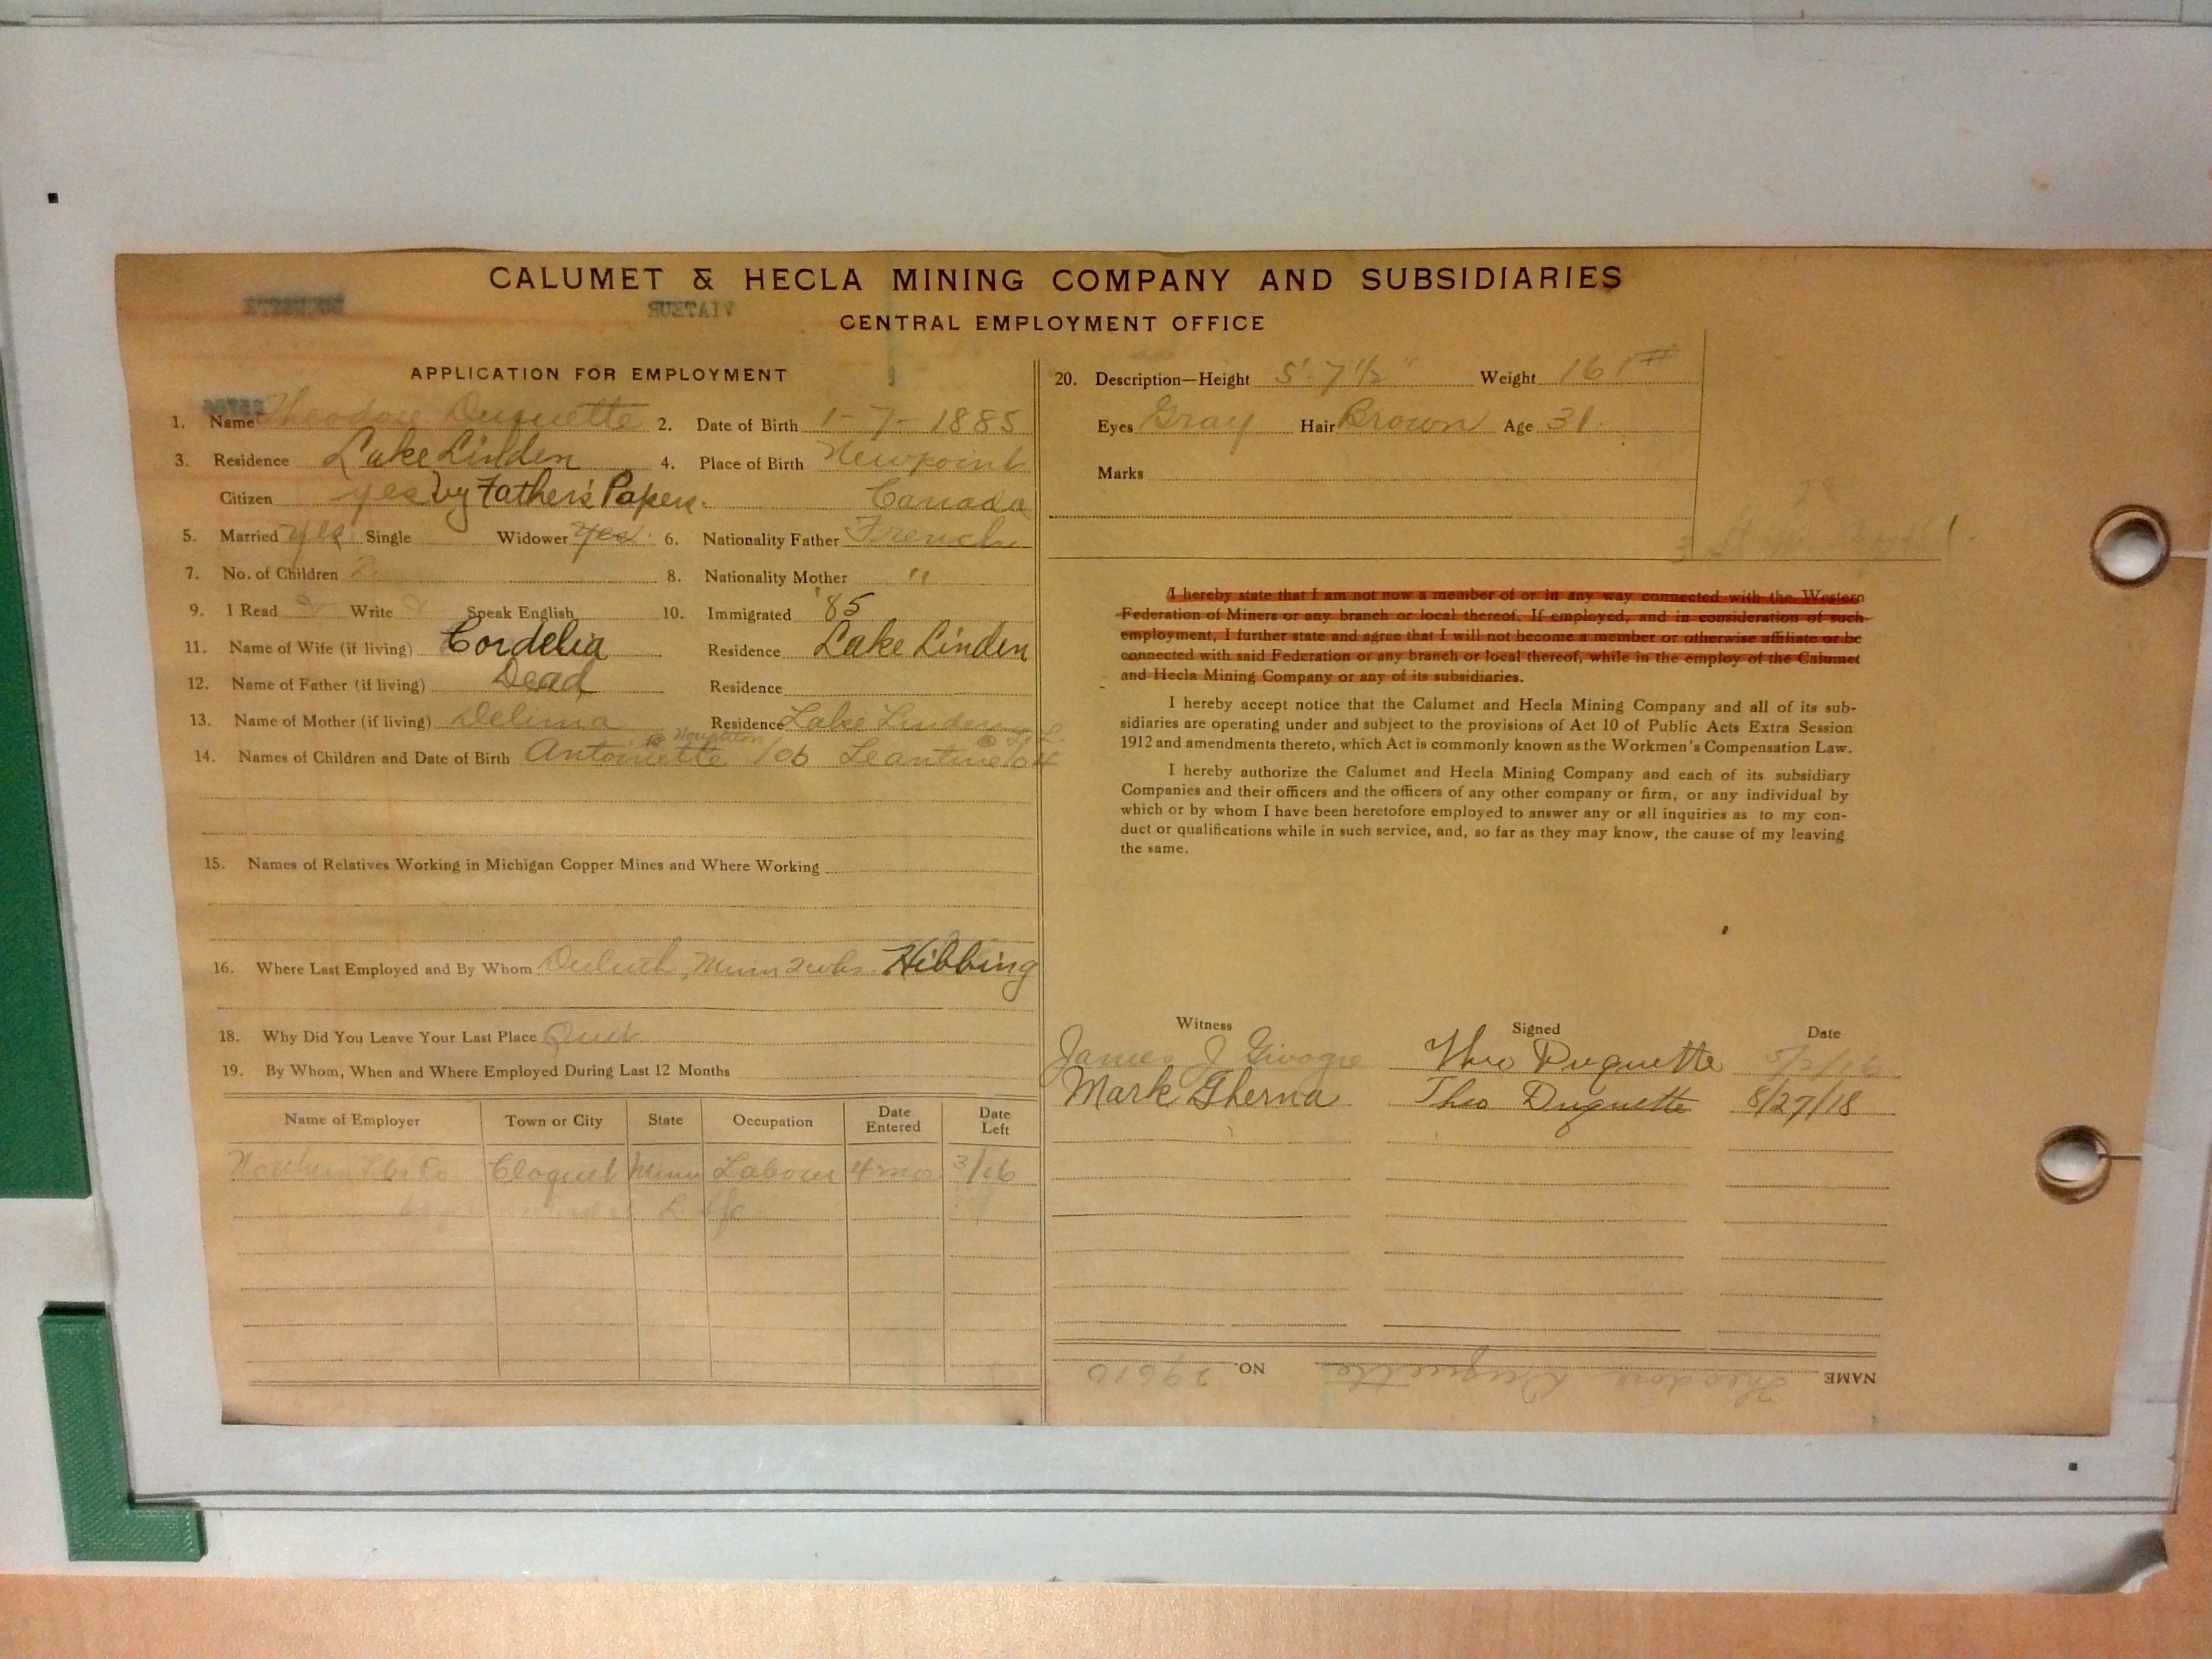 CALUMET & HECLA MINING COMPANY AND SUBSIDIARIES
VIATEUR
CENTRAL EMPLOYMENT OFFICE
APPLICATION FOR EMPLOYMENT
1. Name Theodore Duquette 2. Date of Birth 1-7-1885
3. Residence Lake Linden 4. Place of Birth Newpoint
Citizen yes by Father's Papers. Canada
5. Married yes Single Widower yes 6. Nationality Father French
7. No. of Children 2 8. Nationality Mother "
9. I Read Write Speak English 10. Immigrated '85
11. Name of Wife (if living) Cordelia Residence Lake Linden
12. Name of Father (if living) Dead Residence
13. Name of Mother (if living) Delima Residence Lake Linden
Houghton
14. Names of Children and Date of Birth Antoinette /06 Leantine
15. Names of Relatives Working in Michigan Copper Mines and Where Working
16. Where Last Employed and By Whom Duluth, Minn 2 wks. Hibbing
18. Why Did You Leave Your Last Place Quit
19. By Whom, When and Where Employed During Last 12 Months
Name of Employer Town or City State Occupation Date Entered Date Left
Northern Lbr Co Cloquet Minn Labour 4 mo 3/16
20. Description—Height 5' 7 1/2" Weight 161 #
Eyes Gray Hair Brown Age 31.
Marks
I hereby state that I am not now a member of or in any way connected with the Western
Federation of Miners or any branch or local thereof. If employed, and in consideration of such
employment, I further state and agree that I will not become a member or otherwise affiliate or be
connected with said Federation or any branch or local thereof, while in the employ of the Calumet
and Hecla Mining Company or any of its subsidiaries.
I hereby accept notice that the Calumet and Hecla Mining Company and all of its sub-
sidiaries are operating under and subject to the provisions of Act 10 of Public Acts Extra Session
1912 and amendments thereto, which Act is commonly known as the Workmen's Compensation Law.
I hereby authorize the Calumet and Hecla Mining Company and each of its subsidiary
Companies and their officers and the officers of any other company or firm, or any individual by
which or by whom I have been heretofore employed to answer any or all inquiries as to my con-
duct or qualifications while in such service, and, so far as they may know, the cause of my leaving
the same.
Witness Signed Date
James J Theo Duquette 5/2/16
Mark Gherna Theo Duquette 8/27/18
NAME Theodore Duquette NO. 29610